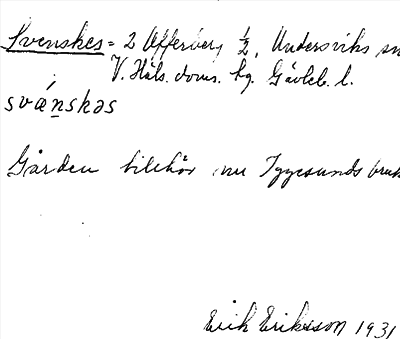 Svenskes = 2 Offerberg 1/2, Undersviks sn
V. Häls. doms. hg. Gävleb. l.
svǽn̲skəs
Gården tillhör nu Iggesunds bruk
Erik Eriksson 1931